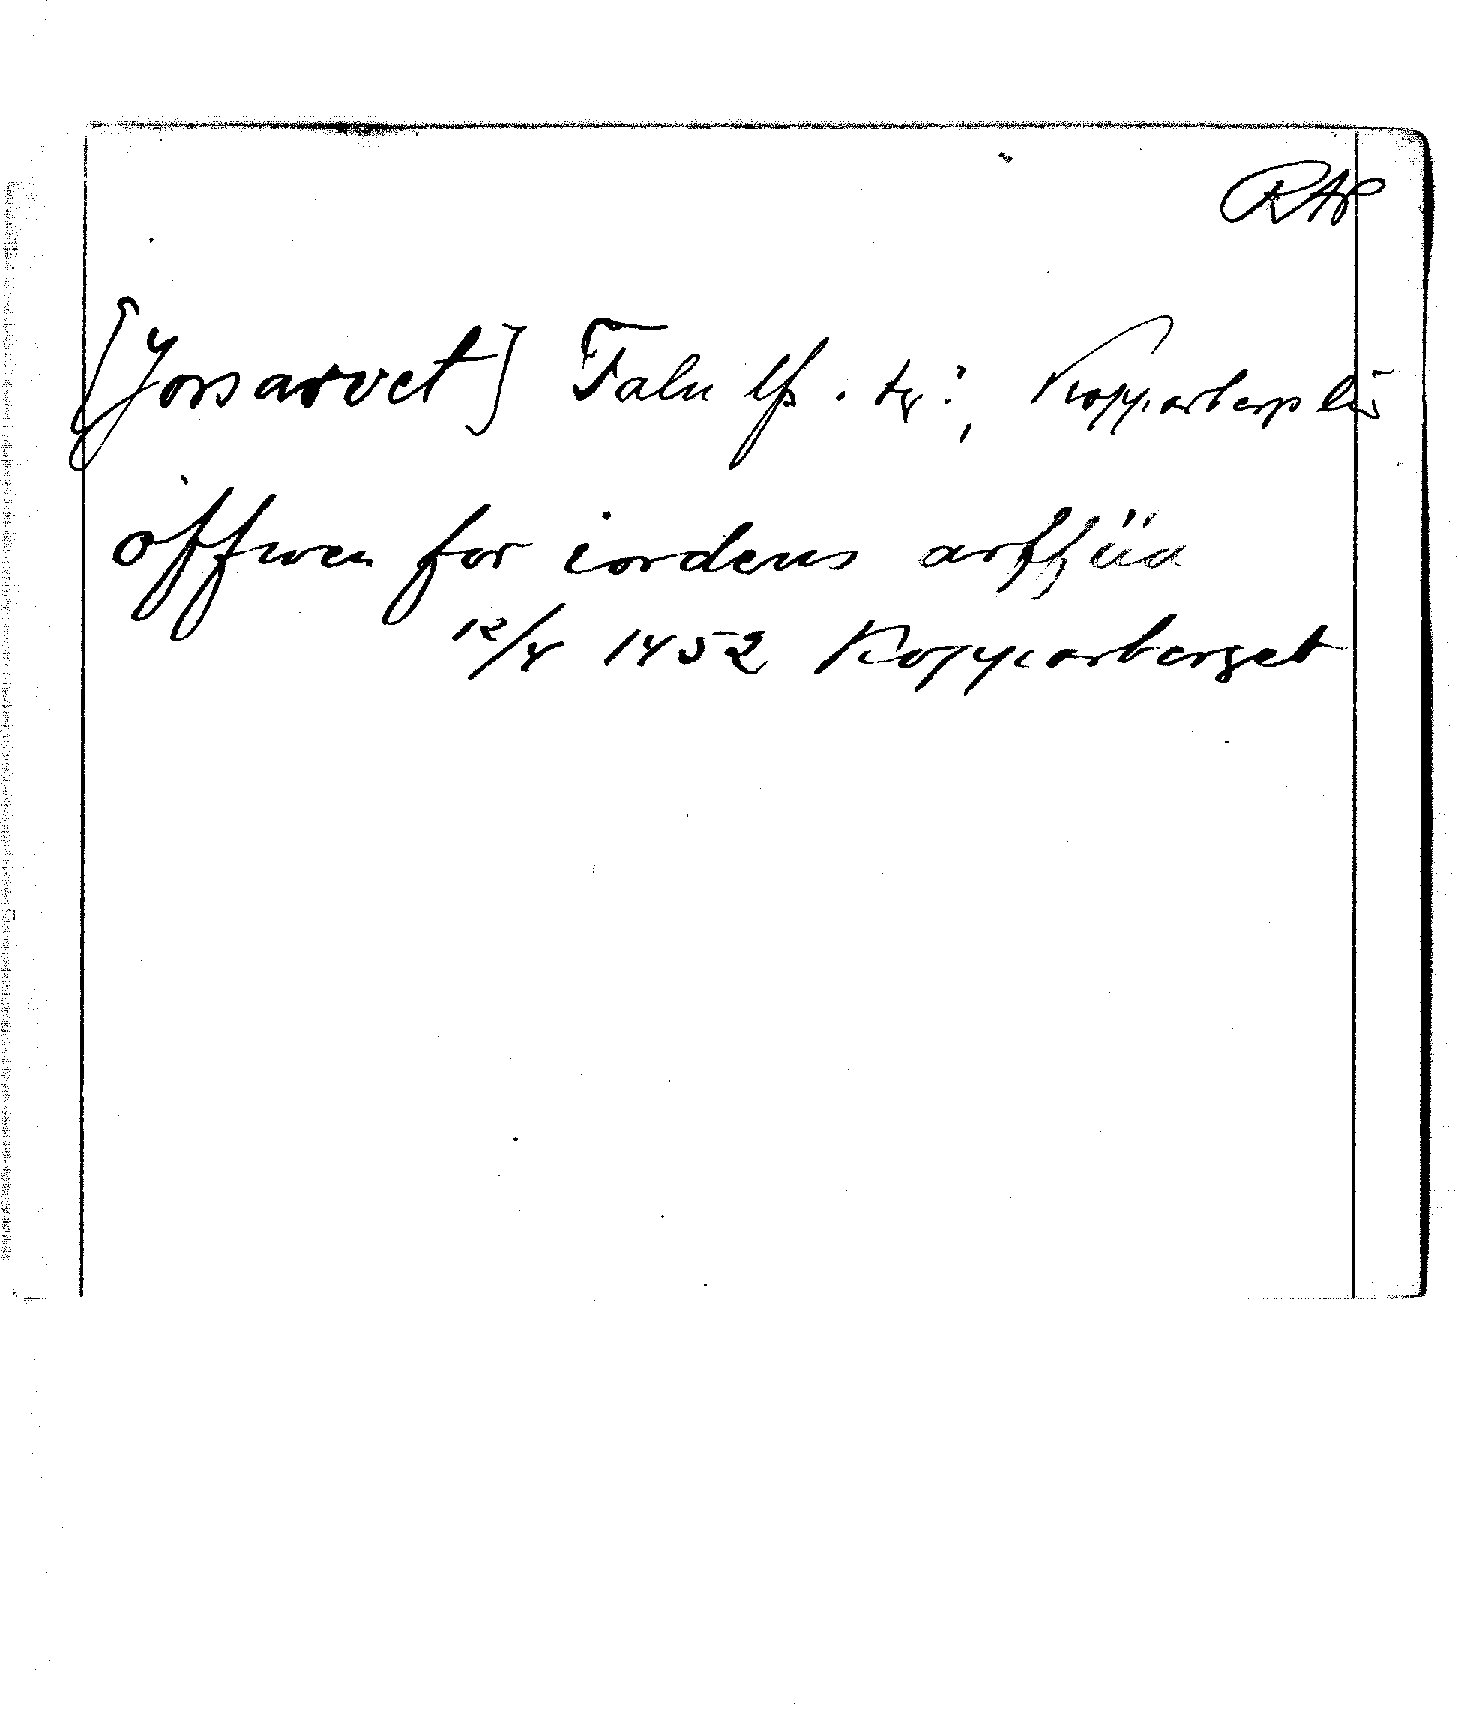 RAP
[Jonsarvet] Falu lfs. tg?, Kopparbergs län
offwen for iordens arff
12/4 1452 Kopparberget